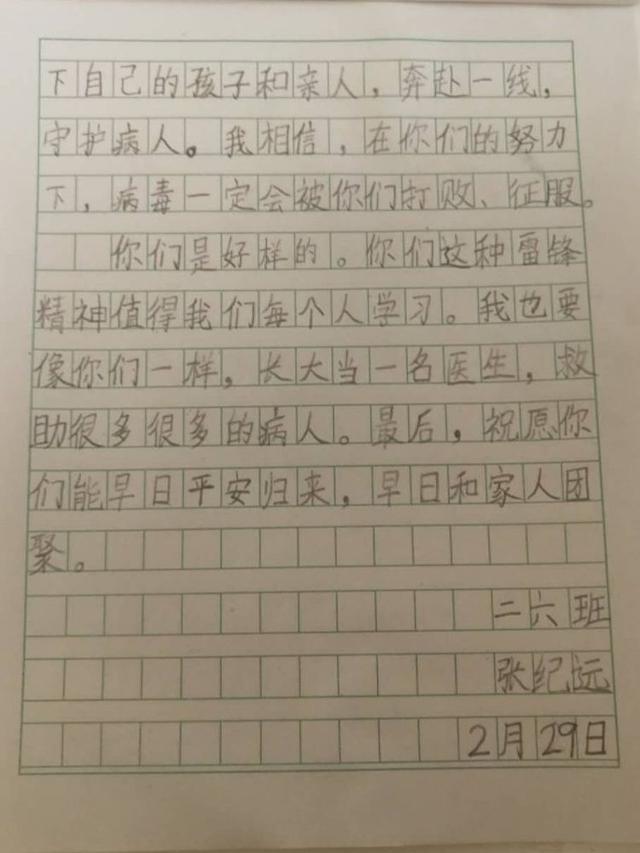 下自己的孩子和亲人，奔赴一线，
守护病人。我相信，在你们的努力
下，病毒一定会被你们打败、征服。
你们是好样的。你们这种雷锋
精神值得我们每个人学习。我也要
像你们一样，长大当一名医生，救
助很多很多的病人。最后，祝愿你
们能早日平安归来，早日和家人团
聚。
二六班
张纪远
2月29日